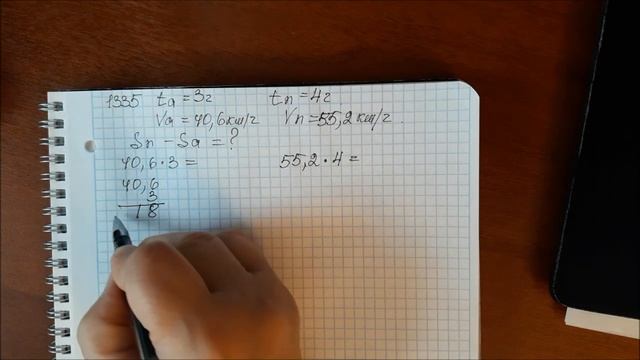 1335 ta = 3г tп = 4г
Va = 40,6 км/г Vп = 55,2 км/г.
Sп - Sa = ?
40,6 · 3 = 55,2 · 4 =
40,6
3
18